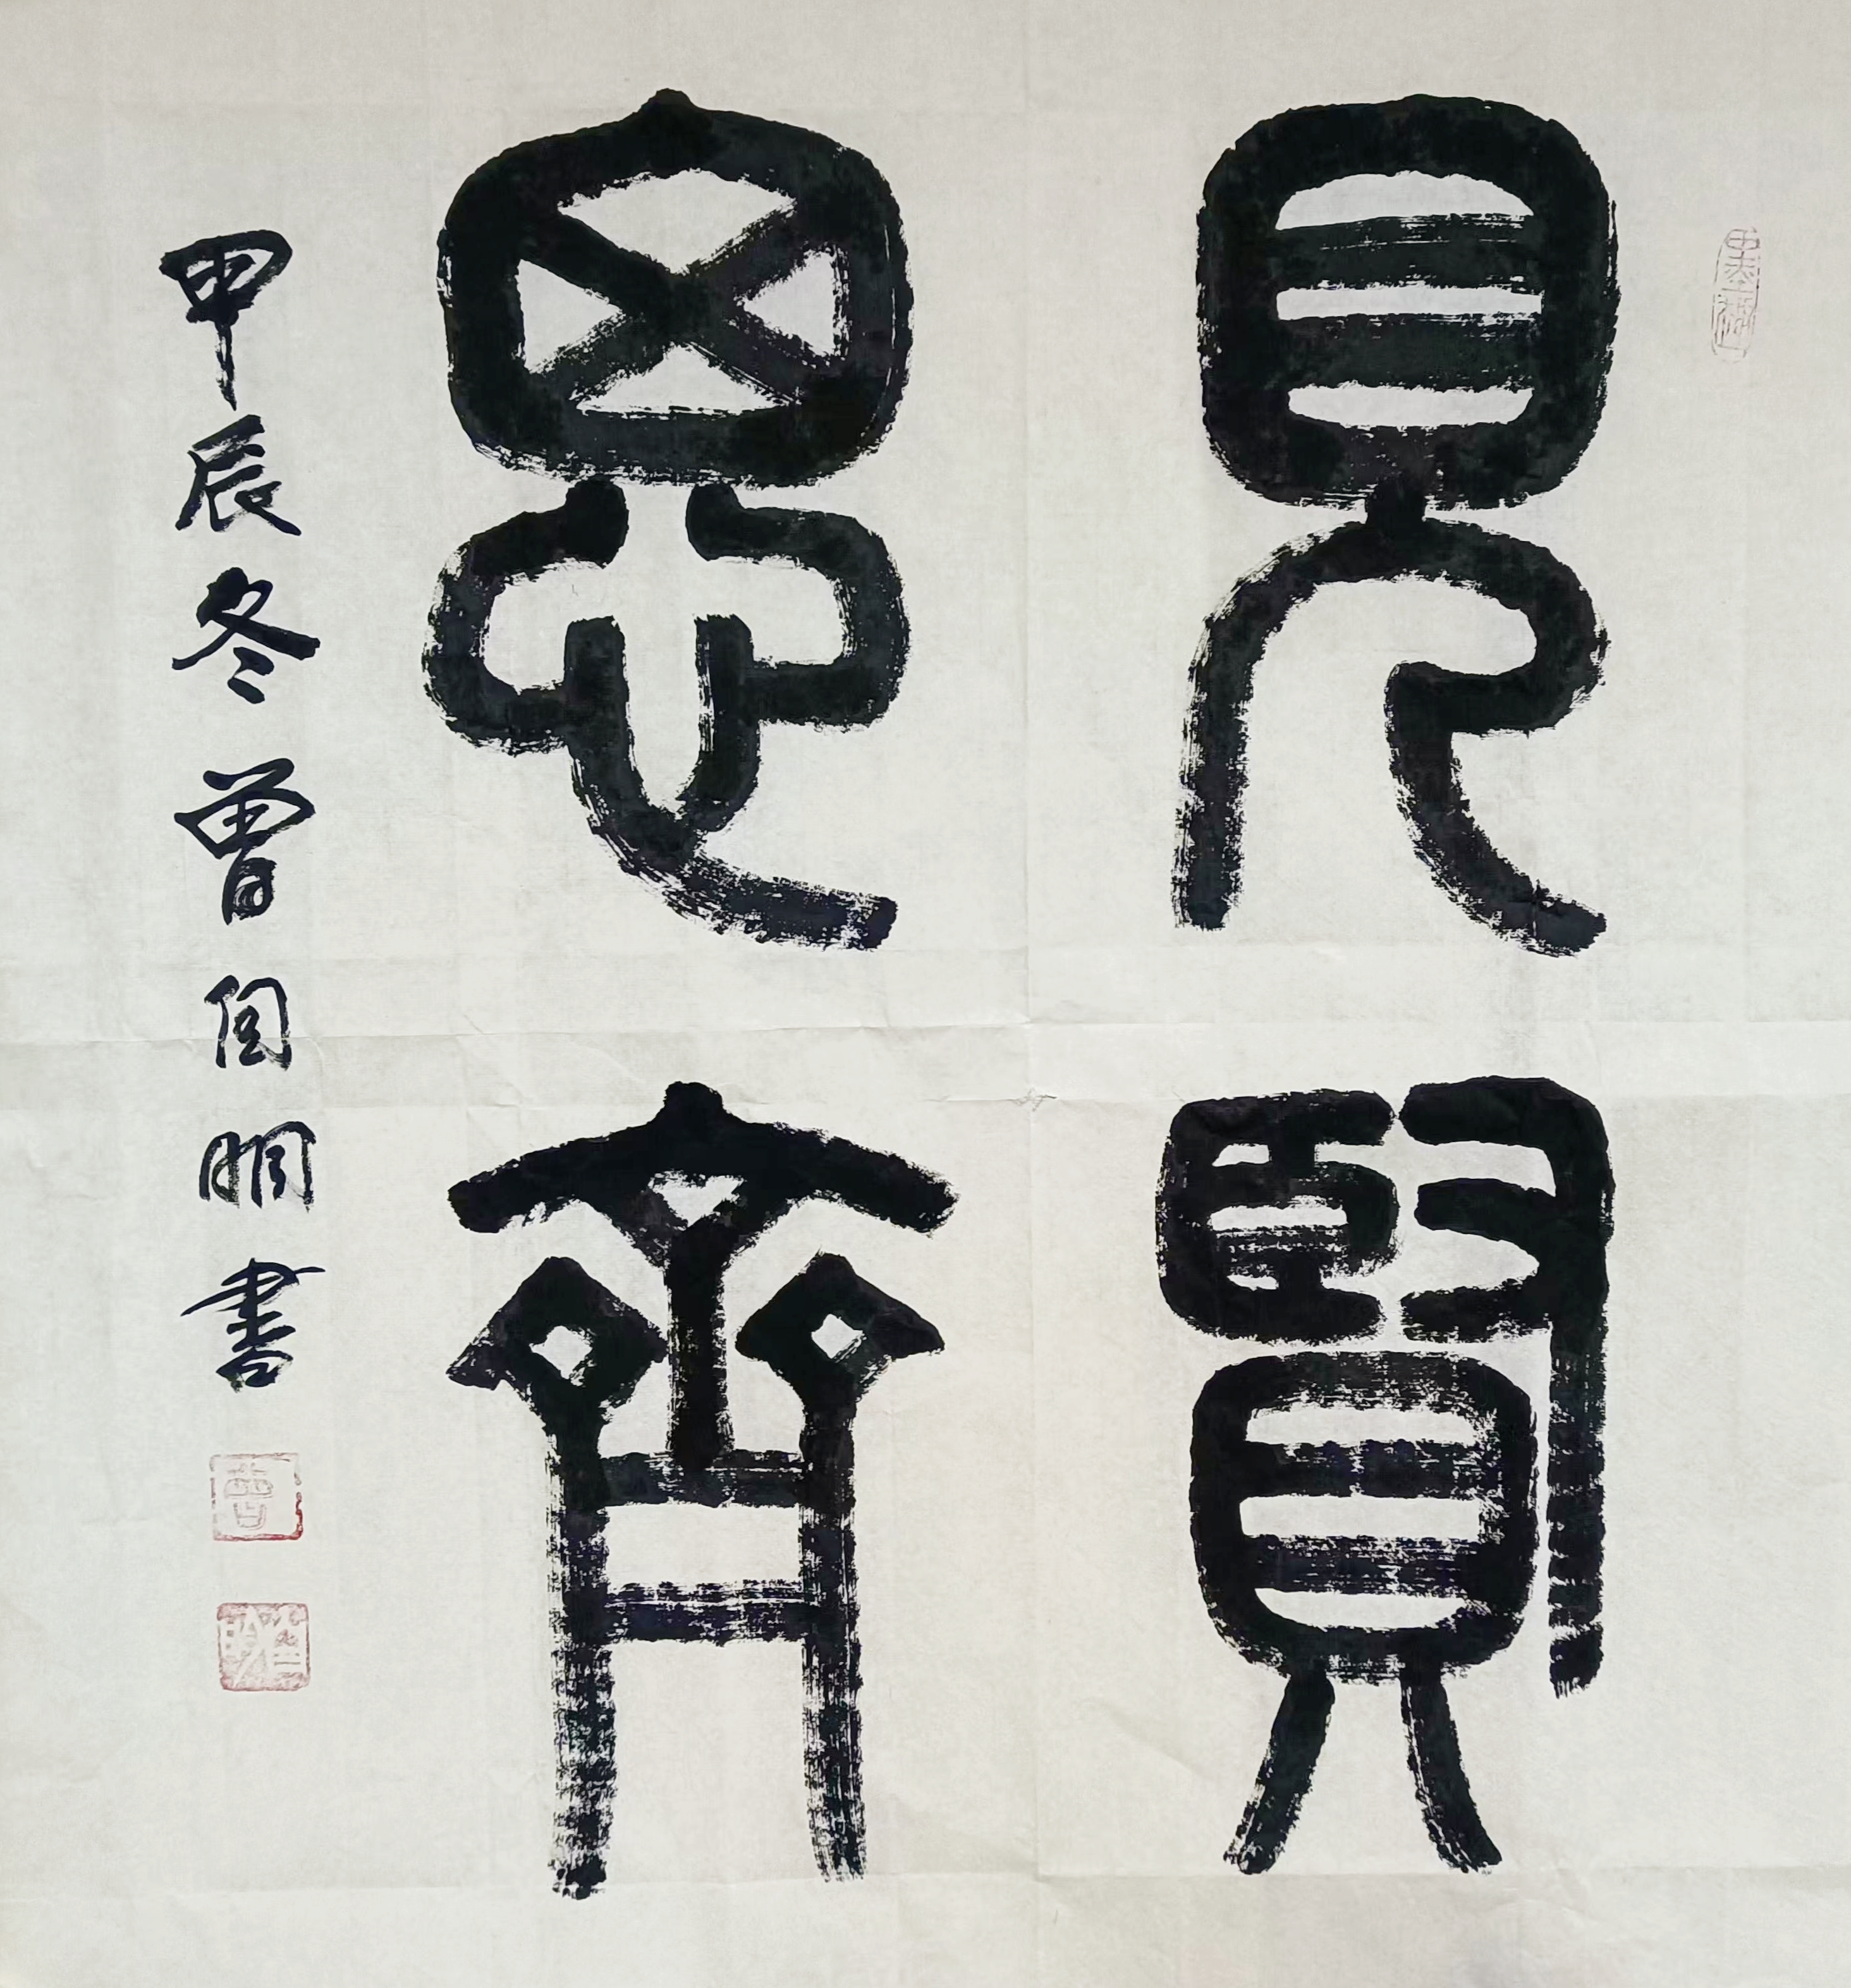 見賢
思齊
甲辰冬曾書
曾